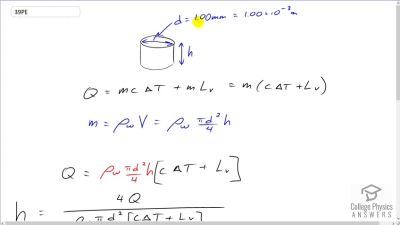 39PE
d = 1.00mm = 1.00×10⁻³ m
h
Q = mcΔT + mLᵥ = m(cΔT + Lᵥ)
m = ρ_w V = ρ_w πd²/4 h
Q = ρ_w πd²/4 h [cΔT + Lᵥ]
h = 4Q / ρ_w πd² [cΔT + Lᵥ]
College Physics
ANSWERS